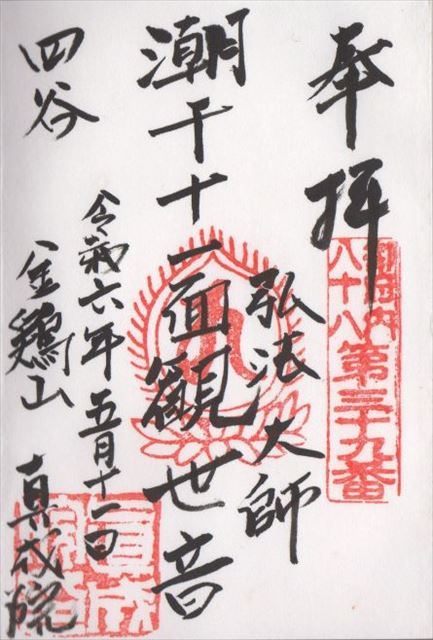 奉拝
御府内
八十八
第三十九番
弘法大師
潮干十一面観世音
令和六年五月十一日
四谷
金鶏山
真成院